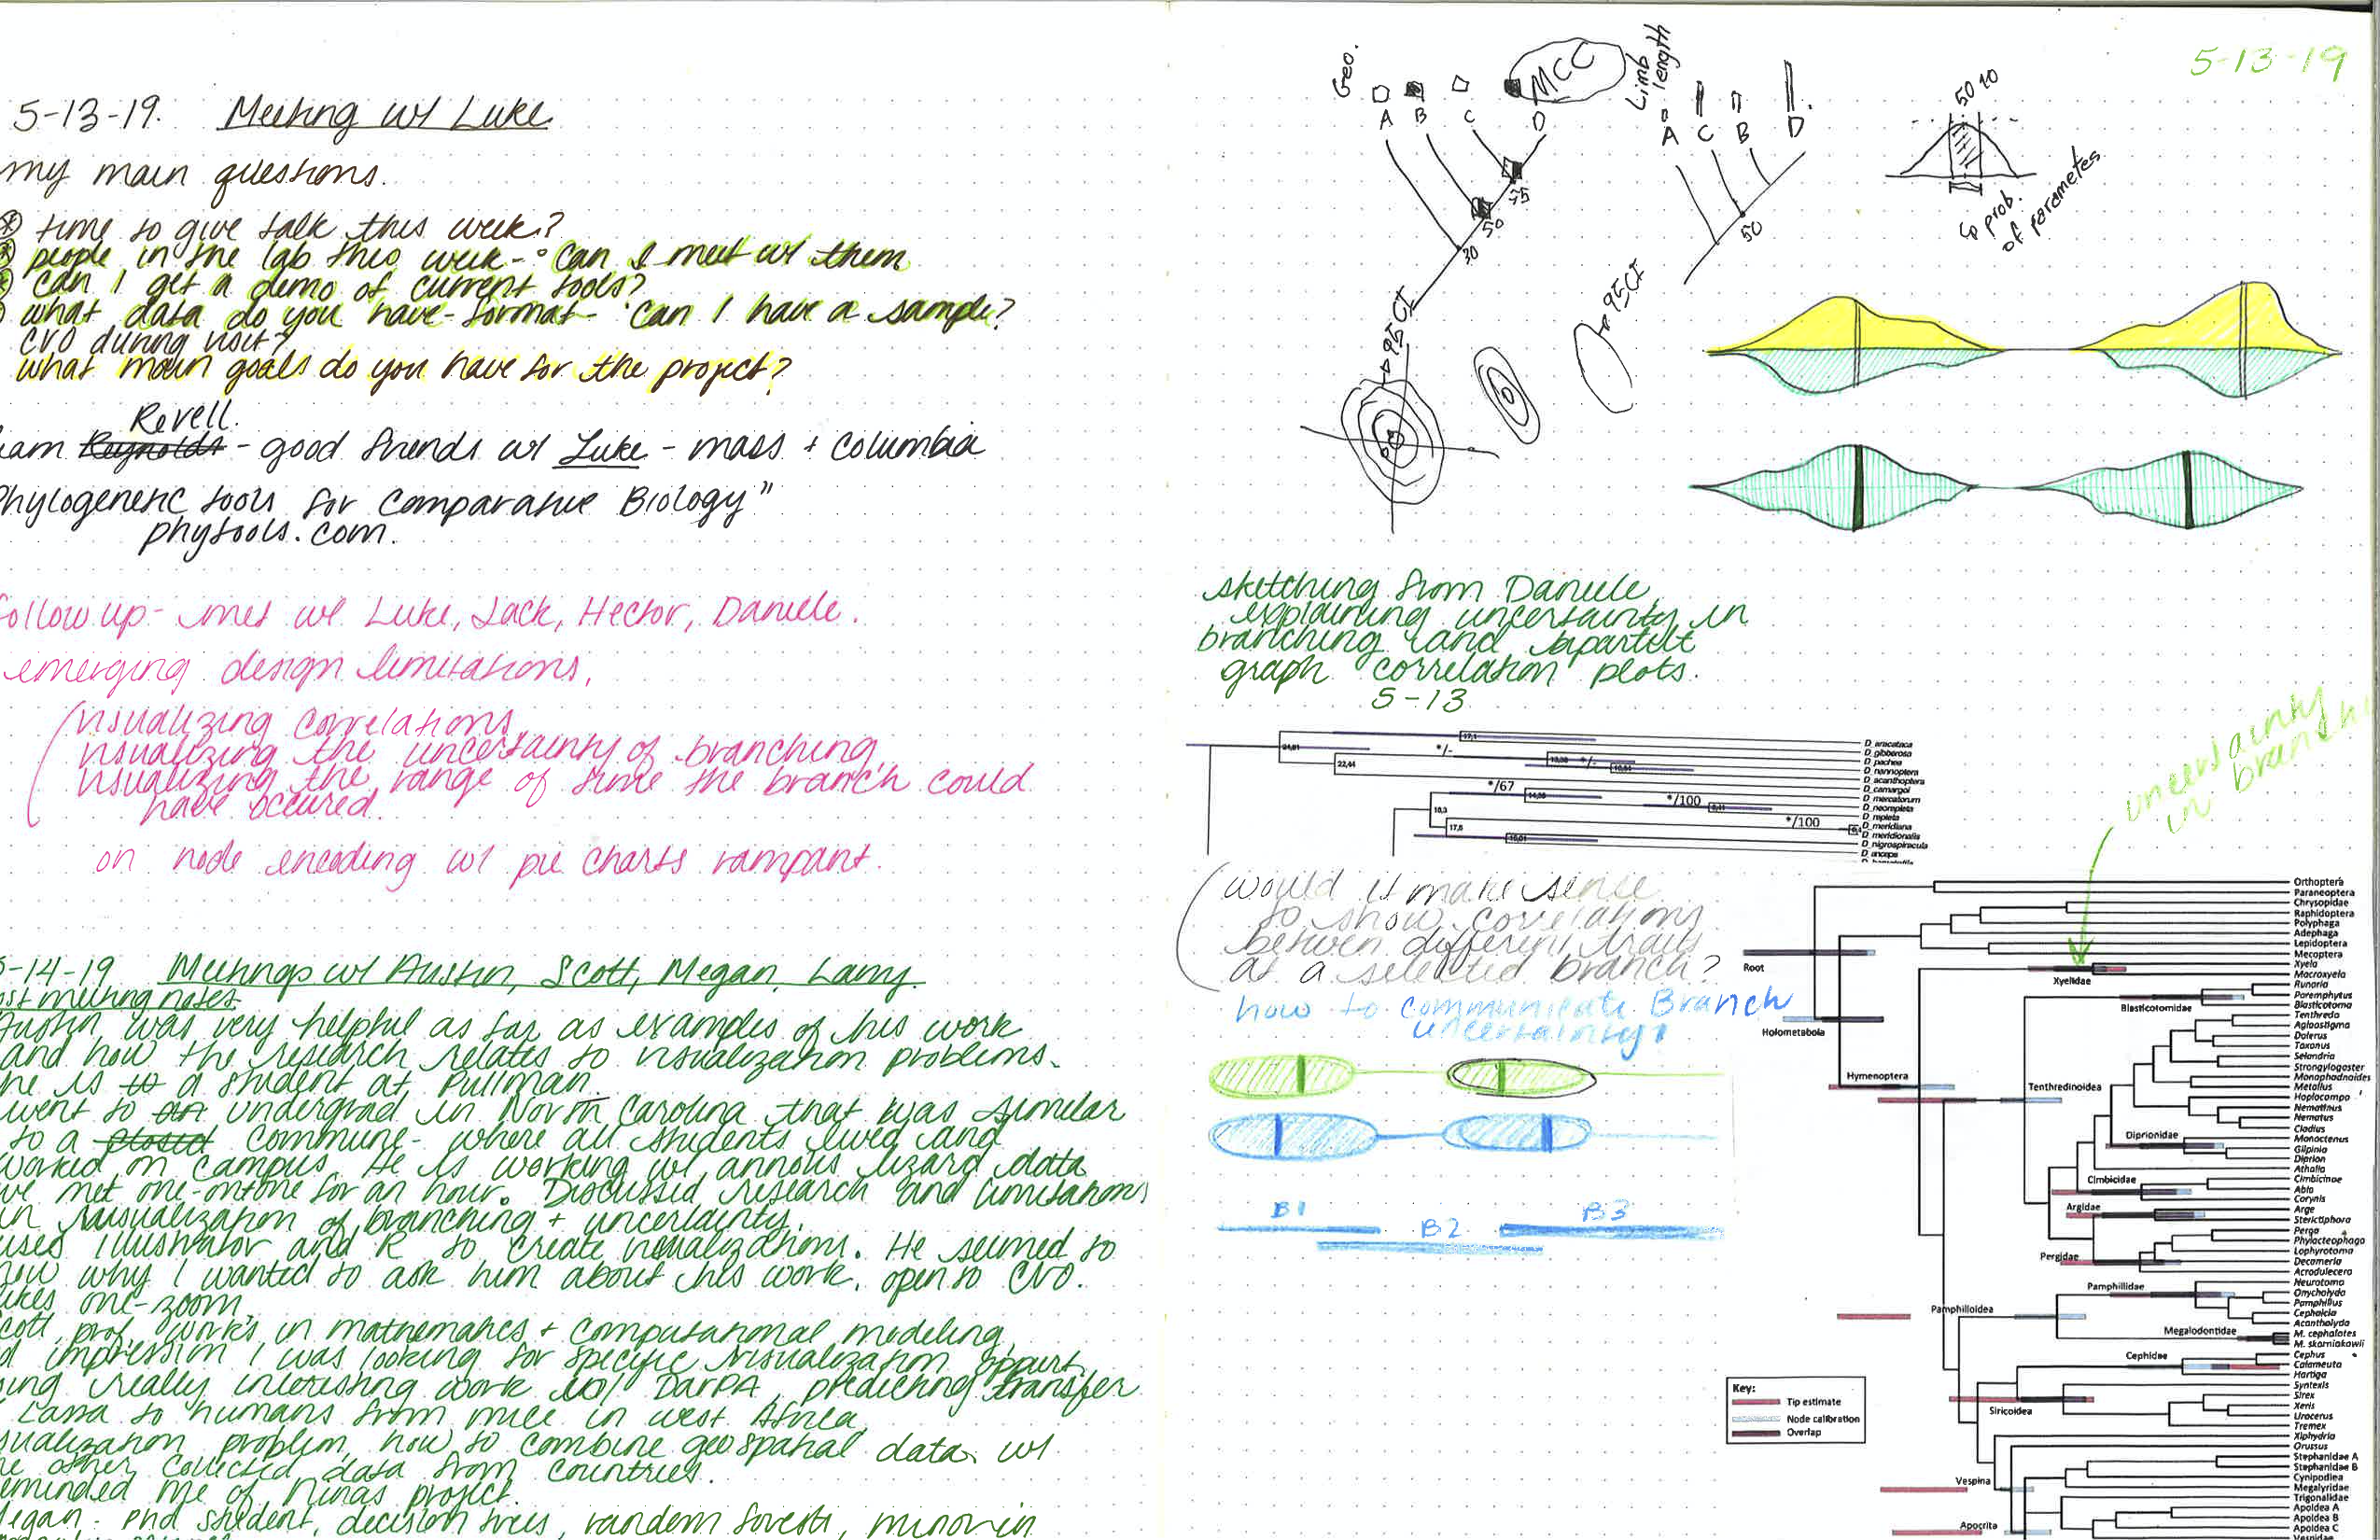 5-13-19. Meeting w/ Luke
my main questions.
time to give talk this week?
people in the lab this week - can I meet w/ them
can I get a demo of current tools?
what data do you have - format - can I have a sample?
CVO during visit?
what main goals do you have for the project?
Revell.
iam Reynolds - good friends w/ Luke - mass + Columbia
Phylogenetic tools for Comparative Biology"
phytools.com.
Follow up - met w/ Luke, Jack, Hector, Daniele.
emerging design limitations.
visualizing correlations
visualizing the uncertainty of branching
visualizing the range of time the branch could
have occured.
on node encoding w/ pie charts rampant.
5-14-19 Meetings w/ Austin, Scott, Megan, Larry.
ost meeting notes.
Austin was very helpful as far as examples of his work
and how the research relates to visualization problems.
he is to a student at Pullman
went to an undergrad in North Carolina that was similar
to a closed commune - where all students lived and
worked on campus. He is working w/ annolis lizard data
we met one-on-one for an hour. Discussed research and limitations
in visualization of branching + uncertainty.
uses Illustrator and R to create visualizations. He seemed to
new why I wanted to ask him about his work. open to CVO.
ikes one-zoom.
cott, prof, works in mathematics + computational modeling,
d impression I was looking for specific visualization oppurt.
ing really interesting work w/ DARPA, predicting transfer
Lassa to humans from mice in west Africa.
sualization problem, how to combine geospatial data w/
he other collected data from countries.
eminded me of Ninas project.
Megan - PhD student, decision trees, random forests, minor in
5-13-19
Geo.
A B C D
MCC
Limb length
A C B D
30 50 75
50
50 70
prob. of parameters
95CI
95CI
sketching from Daniele,
explaining uncertainty in
branching and bipartite
graph correlation plots.
5-13
D_aracataca
D_gibberosa
D_pachea
D_nannoptera
D_acanthoptera
D_camargoi
D_mercatorum
D_neorepleta
D_repleta
D_meridiana
D_meridionalis
D_nigrospiracula
D_anceps
17,1
*/-
22,44
*/-
*/67
*/100
18,3
*/100
17,6
uncertainty in
in branch
would it make sence
to show correlations
between different traits
at a selected branch?
how to communicate Branch
uncertainty?
B1
B2
B3
Orthoptera
Paraneoptera
Chrysopidae
Raphidoptera
Polyphaga
Adephaga
Lepidoptera
Mecoptera
Xyela
Macroxyela
Runaria
Paremphytus
Blasticotoma
Tenthredo
Aglaostigma
Dolerus
Taxonus
Selandria
Strongylogaster
Monophadnoides
Metallus
Hoplocampa
Nematinus
Nematus
Cladius
Monoctenus
Gilpinia
Diprion
Athalia
Cimbicinae
Abia
Corynis
Arge
Sterictiphora
Perga
Phylacteophaga
Lophyrotoma
Decameria
Acrodulecera
Neurotoma
Onycholyda
Pamphilius
Cephalcia
Acantholyda
M. cephalotes
M. skorniakowii
Cephus
Calameuta
Hartiga
Syntexis
Sirex
Xeris
Urocerus
Tremex
Xiphydria
Orussus
Stephanidae A
Stephanidae B
Cynipoidea
Megalyridae
Trigonalidae
Apoidea A
Apoidea B
Apoidea C
Vespidae
Root
Xyelidae
Blasticotomidae
Holometabola
Hymenoptera
Tenthredinoidea
Diprionidae
Cimbicidae
Argidae
Pergidae
Pamphiliidae
Pamphilioidea
Megalodontidae
Cephidae
Siricoidea
Vespina
Apocrita
Key:
Tip estimate
Node calibration
Overlap